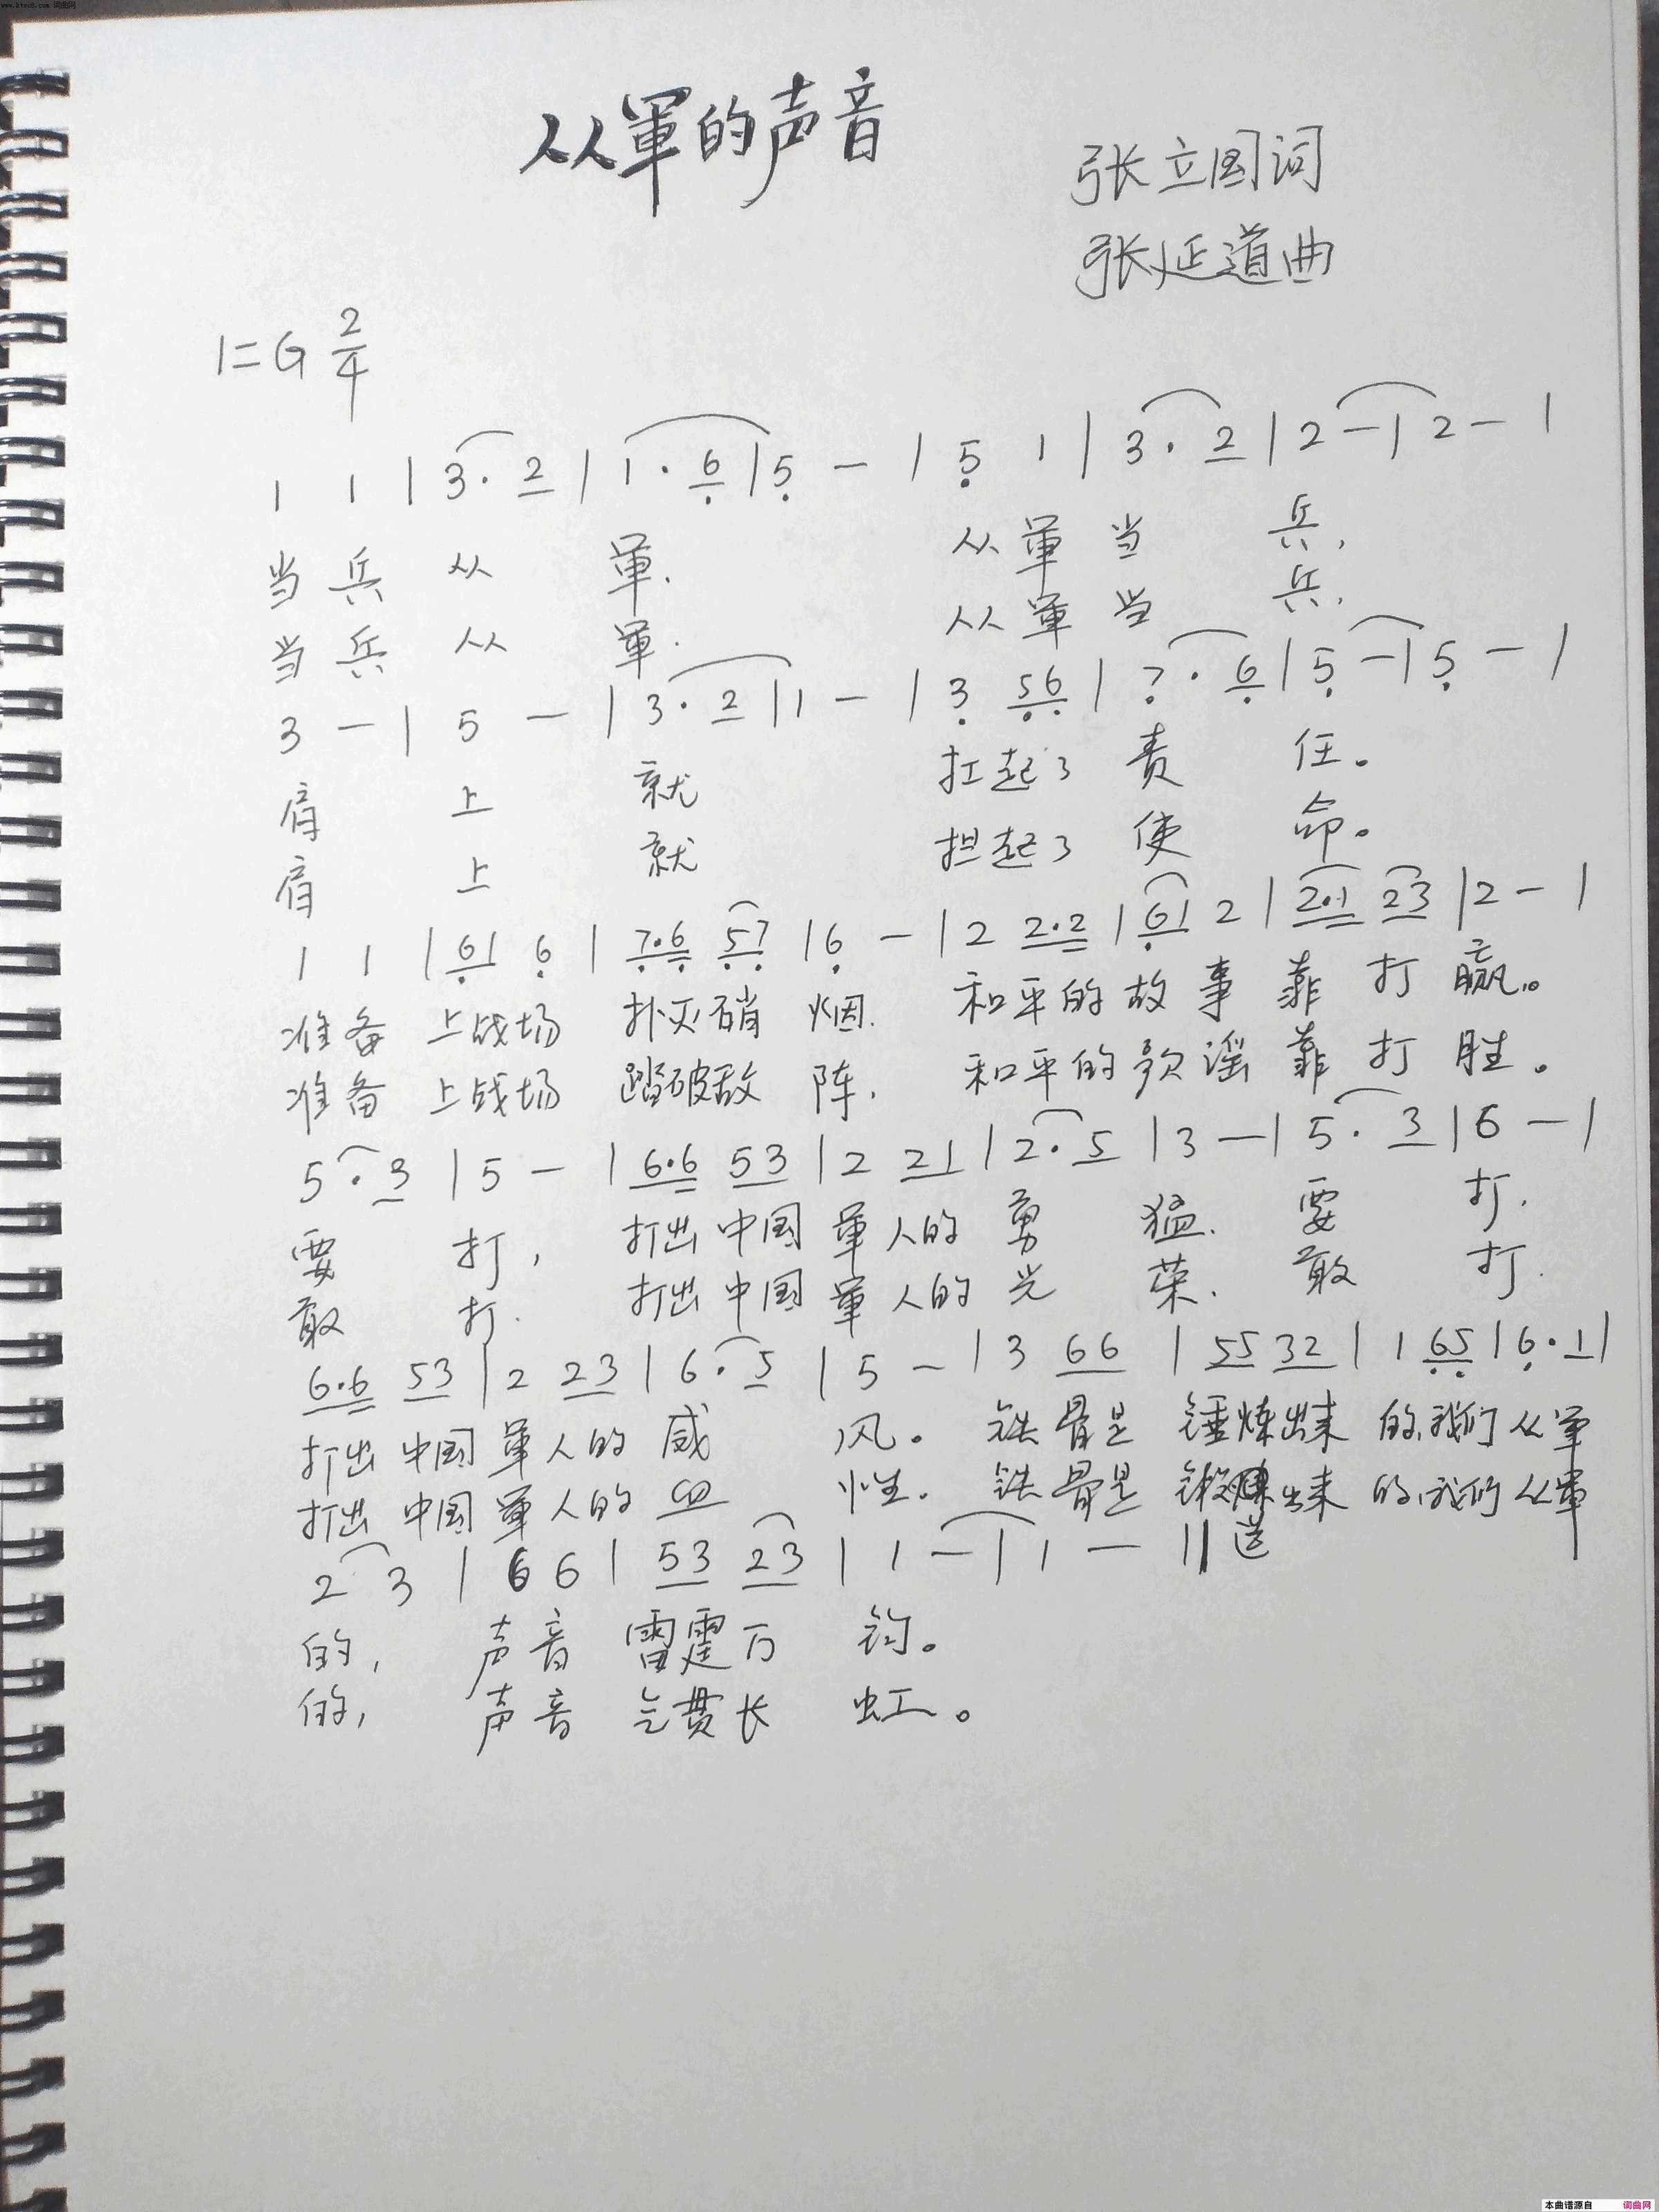 www.ktvc8.com 词曲网
从軍的声音
张立国词
张延道曲
1=G 2/4
1 1 | 3. 2 | 1. 6 | 5 - | 5 1 | 3. 2 | 2 - | 2 - |
当兵从軍. 从軍当兵,
当兵从軍. 从軍当兵,
3 - | 5 - | 3. 2 | 1 - | 3 56 | 7. 6 | 5 - | 5 - |
肩上就扛起了责任。
肩上就担起了使命。
1 1 | 61 6 | 7.6 57 | 6 - | 2 2.2 | 61 2 | 2.1 23 | 2 - |
准备上战场 扑灭硝烟. 和平的故事靠打赢。
准备上战场 踏破敌阵. 和平的歌谣靠打胜。
5. 3 | 5 - | 6.6 53 | 2 21 | 2. 5 | 3 - | 5. 3 | 6 - |
要打, 打出中国軍人的勇猛. 要打.
敢打. 打出中国軍人的光荣. 敢打.
6.6 53 | 2 23 | 6. 5 | 5 - | 3 66 | 55 32 | 1 65 | 6. 1 |
打出中国軍人的威风。铁骨是锤炼出来的,我们从军
打出中国軍人的血性. 铁骨是锻炼出来的,我们从軍
2 3 | 6 6 | 53 23 | 1 - | 1 - ||
的, 声音雷霆万钧。
的, 声音气贯长虹。
本曲谱源自 词曲网